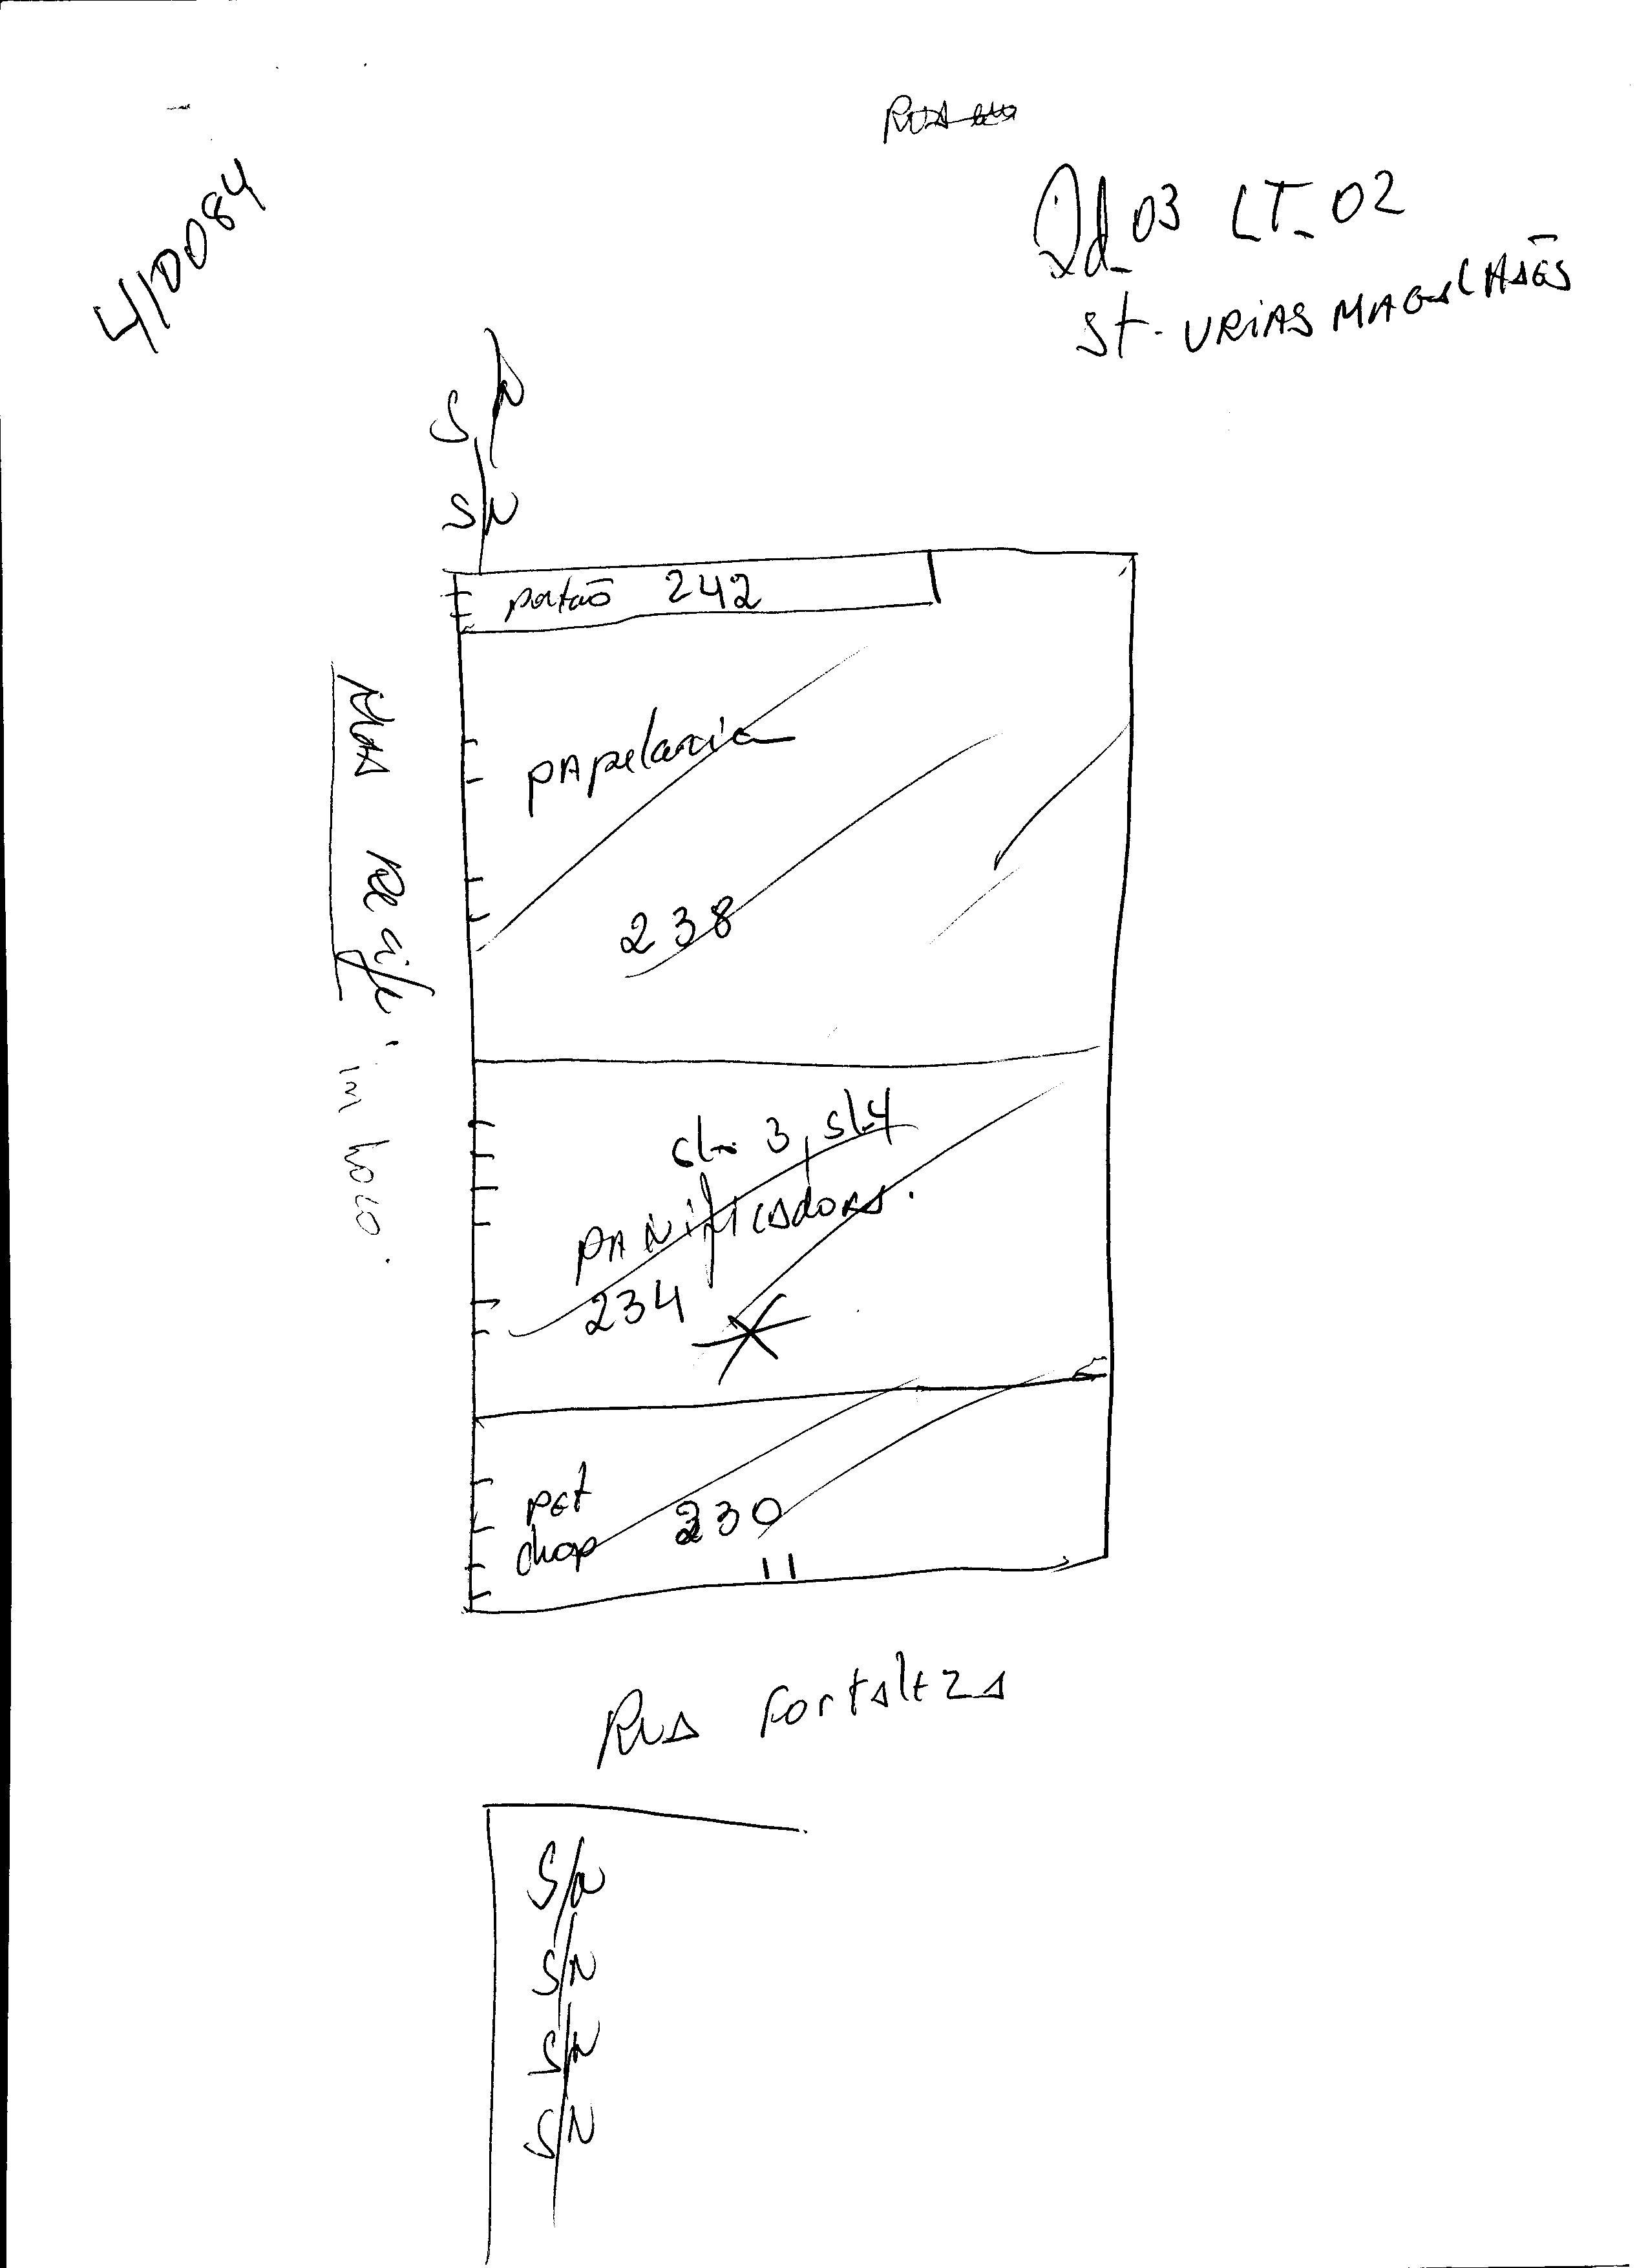 RUA
410084
Qd_03 LT_02
St. URIAS MAGALHÃES
S/N
S/N
portão 242
RUA Recife. in loco.
PApelaria
238
sl. 3, sl.4
PANificadora.
234
pet
shop 230
RUA Fortaleza
S/N
S/N
S/N
S/N